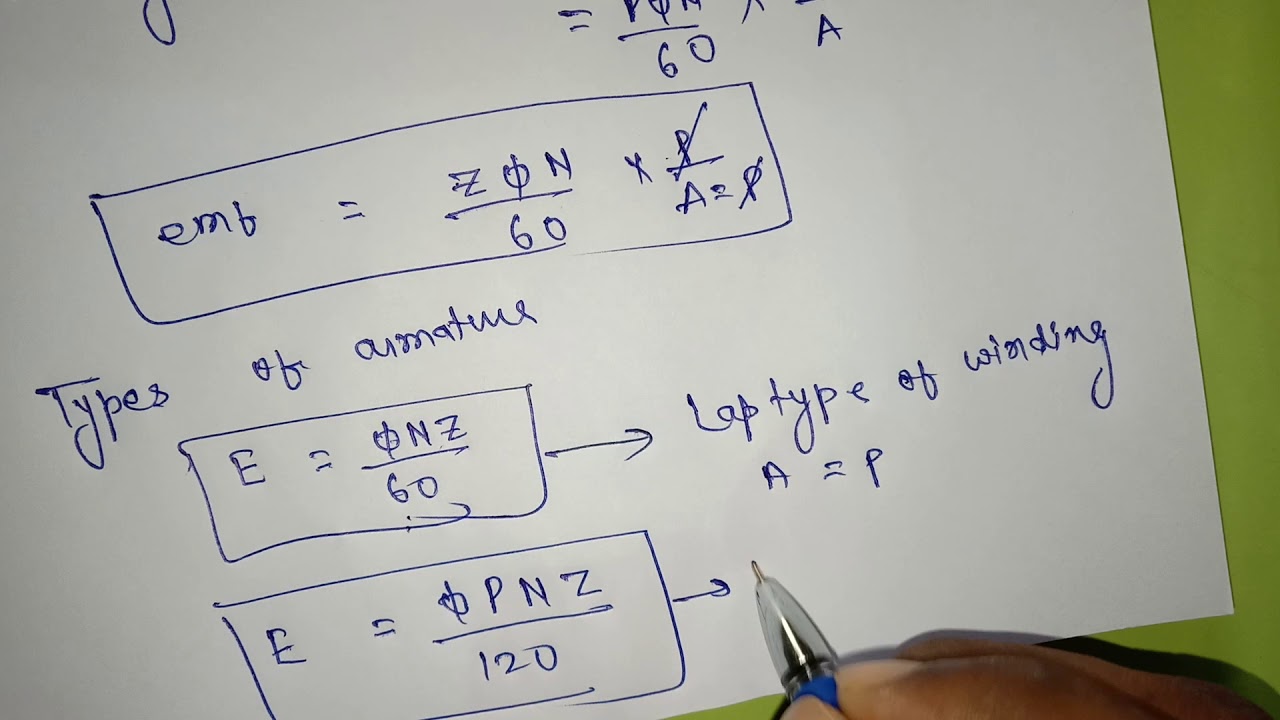 = PΦN/60 × /A
emf = ZΦN/60 × P/A=P
Types of armature
E = ΦNZ/60 → Lap type of winding
A = P
E = ΦPNZ/120 →